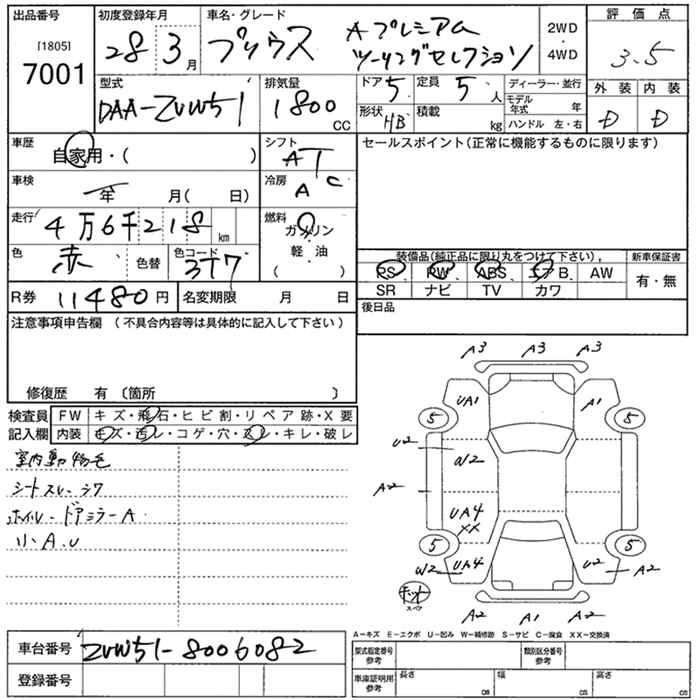 出品番号 初度登録年月 車名・グレード 評価点
[1805] 7001 28 3月 プリウス Aプレミアム ツーリングセレクション 2WD・4WD 3.5
型式 排気量 ドア 5 定員 5人 ディーラー・並行 外装 内装
DAA-ZVW51 1800CC 形状 HB 積載 kg モデル年式 年 ハンドル 左・右 D D
車歴 自家用・( ) シフト AT セールスポイント(正常に機能するものに限ります)
車検 年 月( 日) 冷房 AC
走行 4万6千218km 燃料 ガソリン 軽・油 ( )
色 赤 色替 色コード 3T7 装備品(純正品に限り丸をつけて下さい) 新車保証書
PS PW ABS エアB AW 有・無
SR ナビ TV カワ
R券 11480円 名変期限 月 日 後日品
注意事項申告欄 (不具合内容等は具体的に記入して下さい)
修復歴 有 〔箇所 〕
検査員 FW キズ・飛石・ヒビ割・リペア跡・X要
記入欄 内装 キズ・汚レ・コゲ・穴・スレ・キレ・破レ
室内動物毛
シートスレ・シワ
ホイル・ドアミラーA
小A.U
A3 A3 A3
UA1 A1
5 5
U2 W2
A2
UA4 XX
5 5
W2 UA4 U2 A2
スペア
A2 A1 A2
A−キズ E−エクボ U−凹み W−補修跡 S−サビ C−腐食 XX−交換済
車台番号 ZVW51-8006082
登録番号
型式指定番号 参考 類別区分番号 参考
車庫証明用 参考 長さ cm 幅 cm 高さ cm